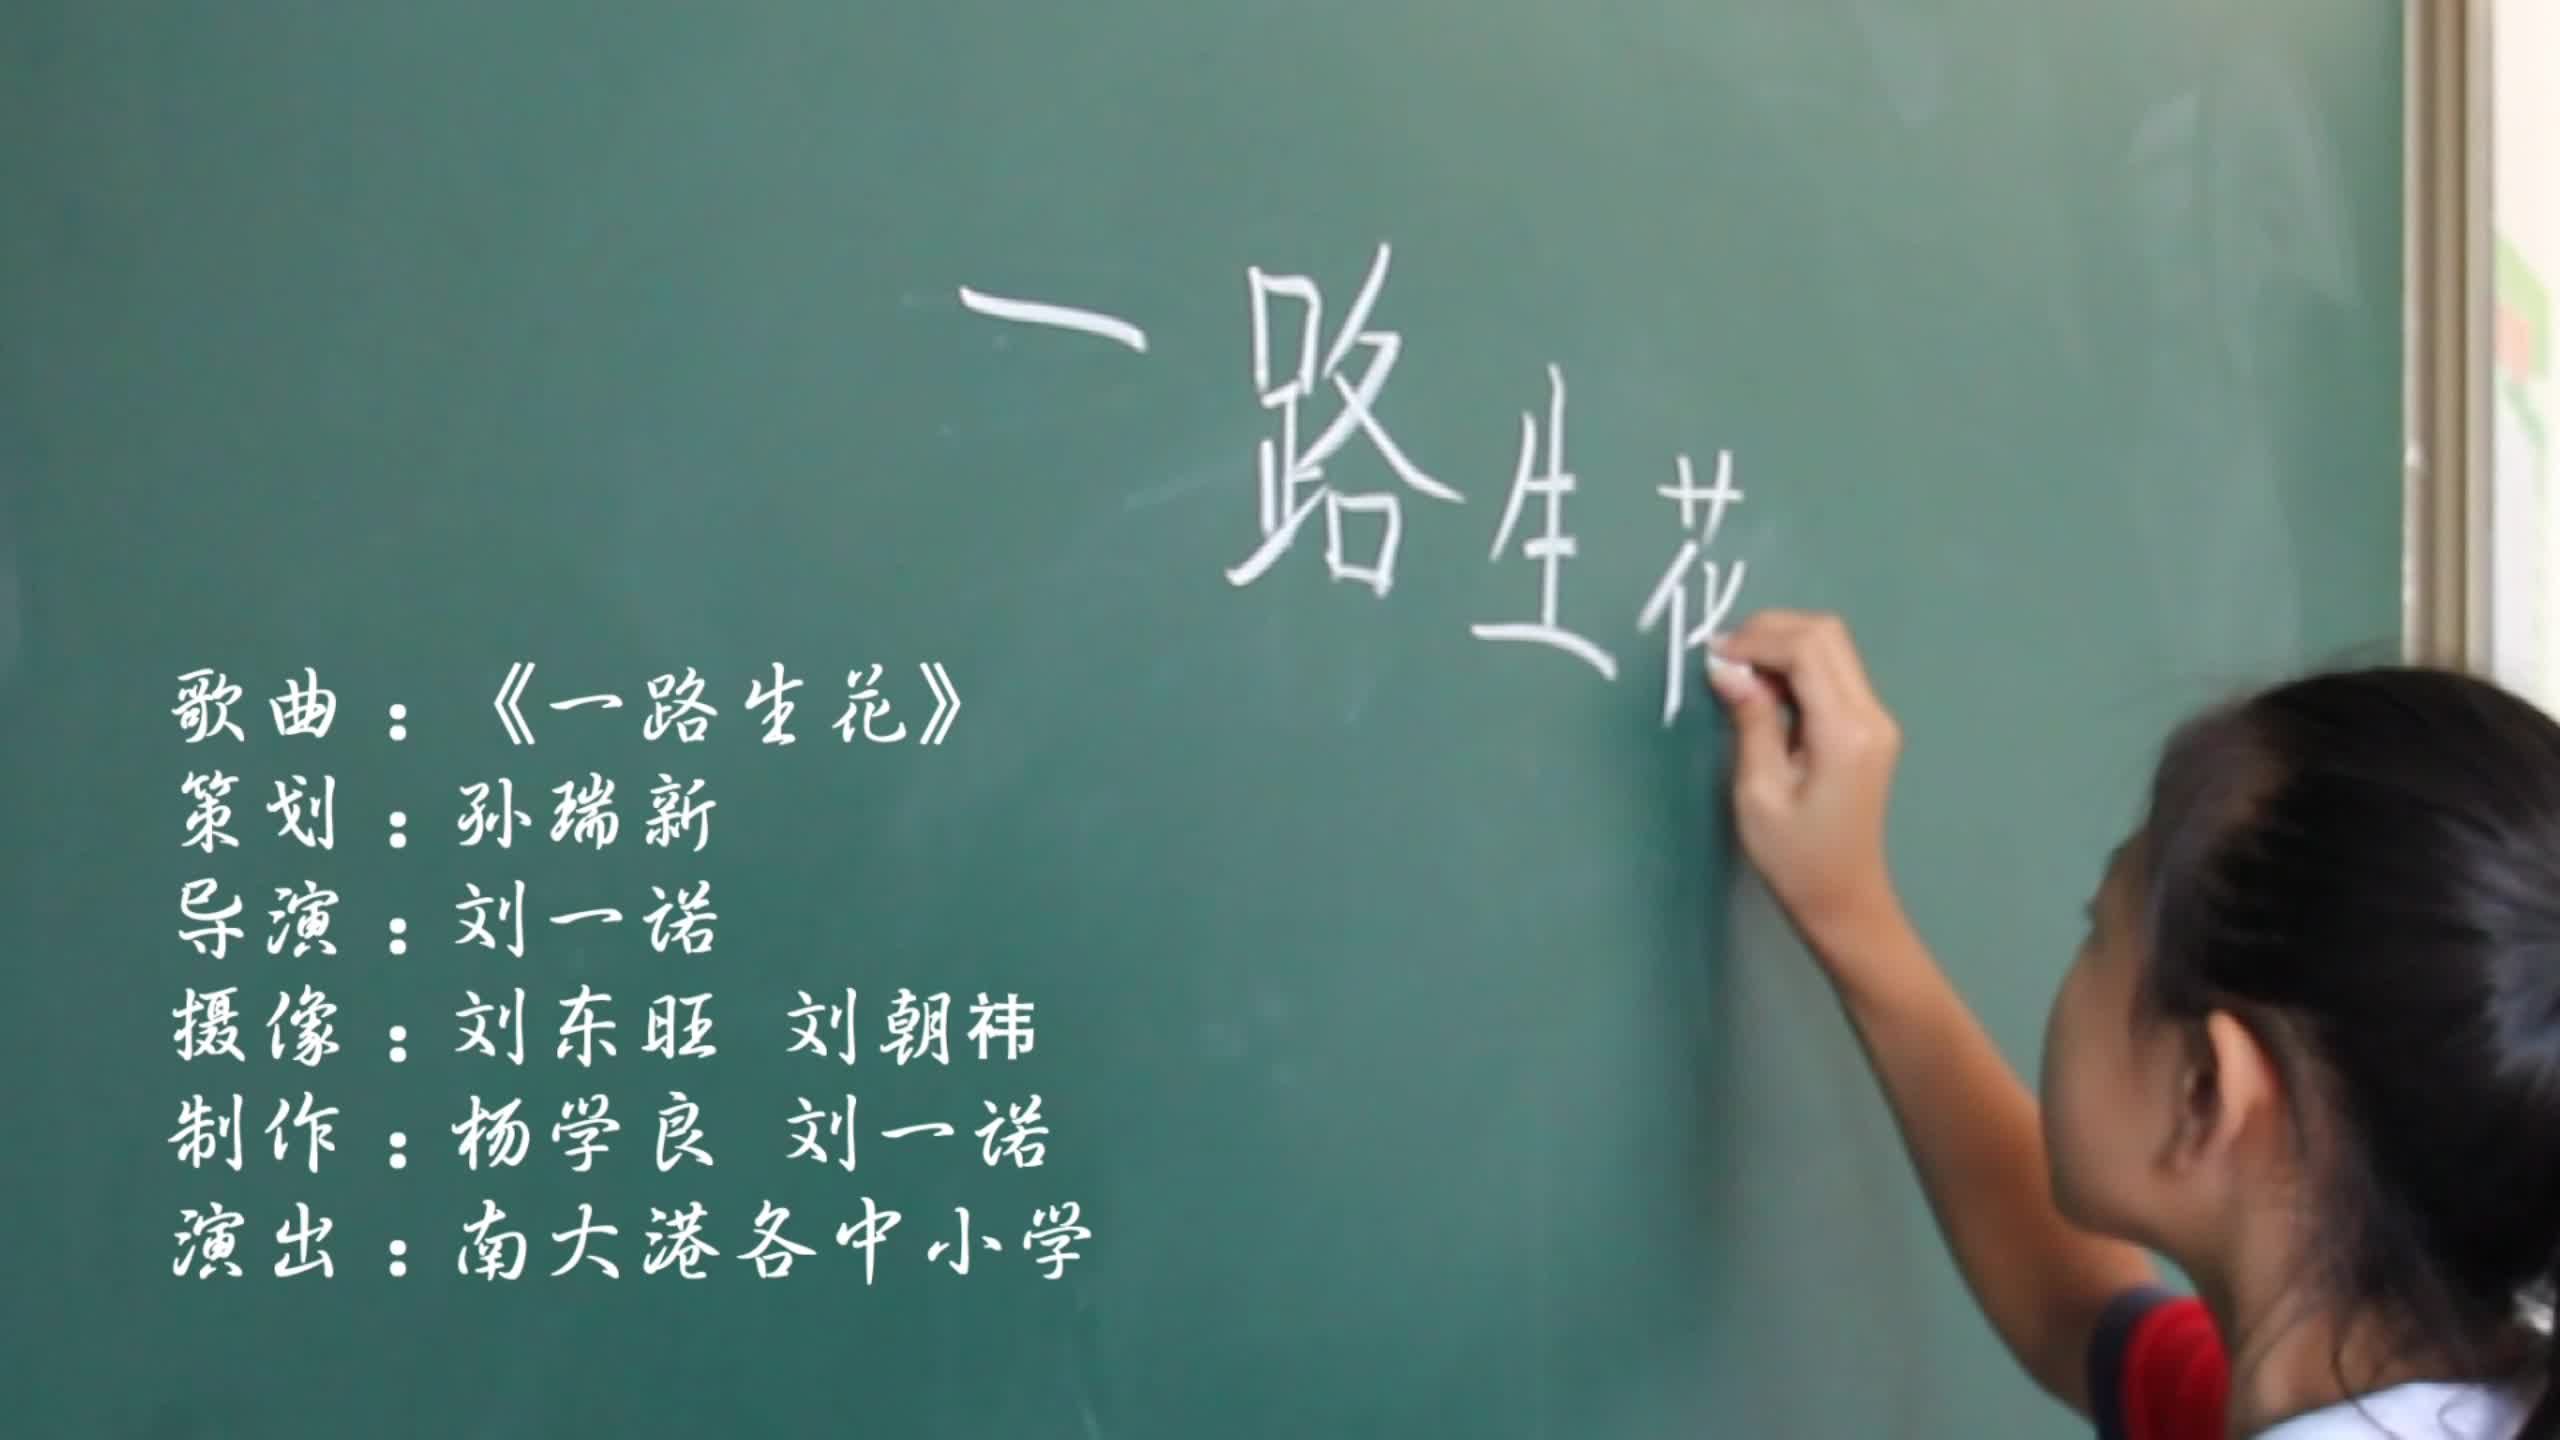 一路生花
歌曲：《一路生花》
策划：孙瑞新
导演：刘一诺
摄像：刘东旺 刘朝祎
制作：杨学良 刘一诺
演出：南大港各中小学